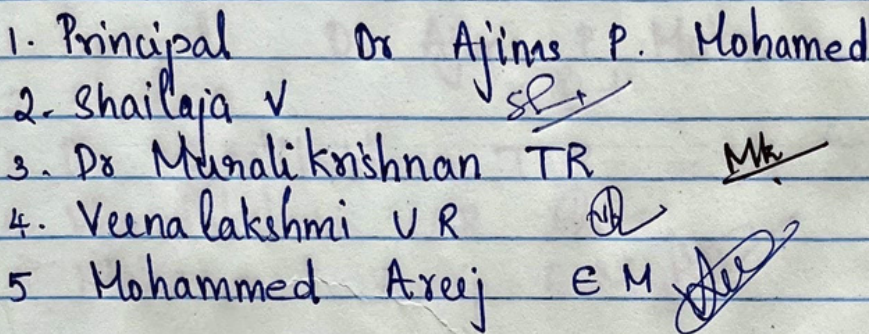 1. Principal Dr Ajims P. Mohamed
2. Shailaja V
3. Dr Muralikrishnan TR Mk
4. Veenalakshmi V R
5 Mohammed Areej E M